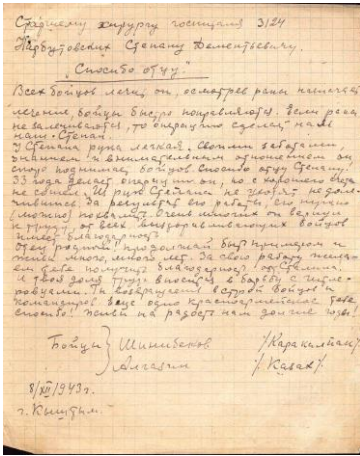 Старшему хирургу госпиталя 3124
Парбутовских Степану Дементьевичу.
"Спасибо отцу."
Всех бойцов лечит он, осмотрев раны назначает
лечение, бойцы быстро поправляются. Если рана
не залечивается, то операцию сделает нам
наш Степан.
У Степана рука легкая. Своими заботами,
знанием и внимательным отношением он
скоро поднимает бойцов. Спасибо отцу Степану.
33 года делает операции он, но с хорошего пути
не сошел. Из рук Степана не уходят не доле-
чившись. За результат его работы, его нужно
(можно) похвалить. Очень многих он вернул
к труду, от всех выздоравливающих бойцов
имеет благодарность.
Отец родной! продолжай быть примером и
живи много, много лет. За свою работу желаем
тебе получить благодарность от Сталина.
И твоя доля труда вносится в борьбу с гитле-
ровцами. Ты возвращаешь в строй бойцов и
командиров. Еще одно красноармейское тебе
спасибо! Живи на радость нам долгие годы!
Бойцы } Шинибеков /Каракалпак/
Алгазин /Казах/.
8/XII/1943 г.
г. Кыштым.